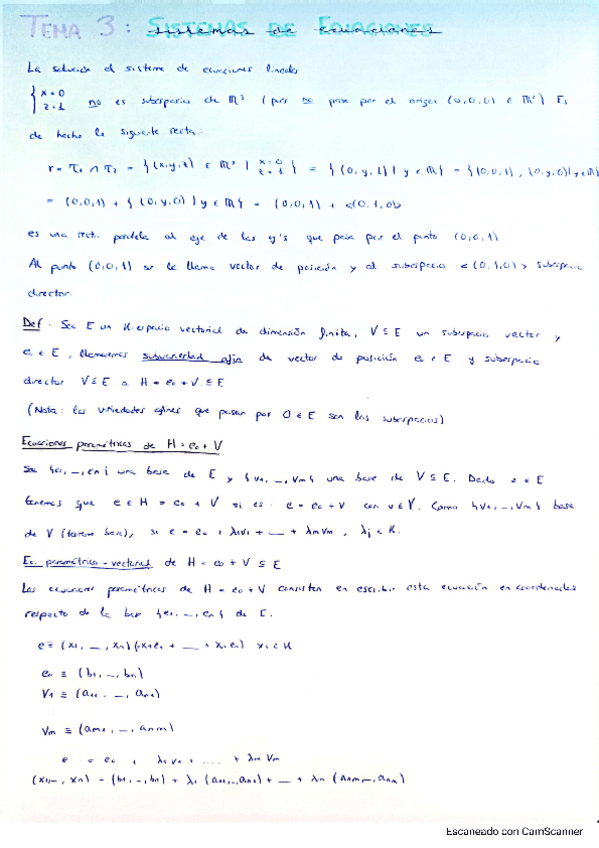 TEMA 3: SISTEMAS DE ECUACIONES
La solución al sistema de ecuaciones lineales
{ x = 0
z = 1 no es subespacio de ℝ³ (pues no pasa por el origen (0,0,0) ∈ ℝ³) Es
de hecho la siguiente recta:
r = π₁ ∩ π₂ = { (x,y,z) ∈ ℝ³ | x=0 z=1 } = { (0,y,1) | y ∈ ℝ } = { (0,0,1), (0,y,0) | y ∈ ℝ }
= (0,0,1) + { (0,y,0) | y ∈ ℝ } = (0,0,1) + <(0,1,0)>
es una recta paralela al eje de las y's que pasa por el punto (0,0,1)
Al punto (0,0,1) se le llama vector de posición y al subespacio <(0,1,0)> subespacio
director.
Def. Sea E un K-espacio vectorial de dimensión finita, V ⊆ E un subespacio vector y
e₀ ∈ E, llamaremos subvariedad afín de vector de posición e₀ ∈ E y subespacio
director V ⊆ E a H = e₀ + V ⊆ E
(Nota: las variedades afines que pasan por 0 ∈ E son los subespacios)
Ecuaciones paramétricas de H = e₀ + V
Sea {e₁, _, en} una base de E y {v₁, _, vm} una base de V ⊆ E. Dado e ∈ E
tenemos que e ∈ H = e₀ + V si es e = e₀ + v con v ∈ V. Como {v₁, _, vm} base
de V (tenemos, si e = e₀ + λ₁v₁ + _ + λm vm, λj ∈ K.
Ec. paramétrica-vectorial de H = e₀ + V ⊆ E
Las ecuaciones paramétricas de H = e₀ + V consisten en escribir esta ecuación en coordenadas
respecto de la base {e₁, _, en} de E.
e ≡ (x₁, _, xn) ( x₁e₁ + _ + xnen) xi ∈ K
e₀ ≡ (b₁, _, bn)
V₁ ≡ (a₁₁, _, an₁)
Vm ≡ (am₁, _, anm)
e = e₀ + λ₁v₁ + .... + λm vm
(x₁, _, xn) = (b₁, _, bn) + λ₁ (a₁₁, _, an₁) + _ + λm (am₁, _, anm)
Escaneado con CamScanner